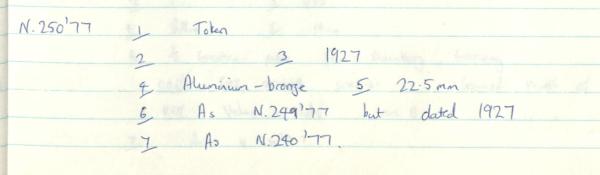 N.250'77 1 Token
2 3 1927
4 Aluminium-bronze 5 22.5mm
6 As N.249'77 but dated 1927
7 As N.240'77.